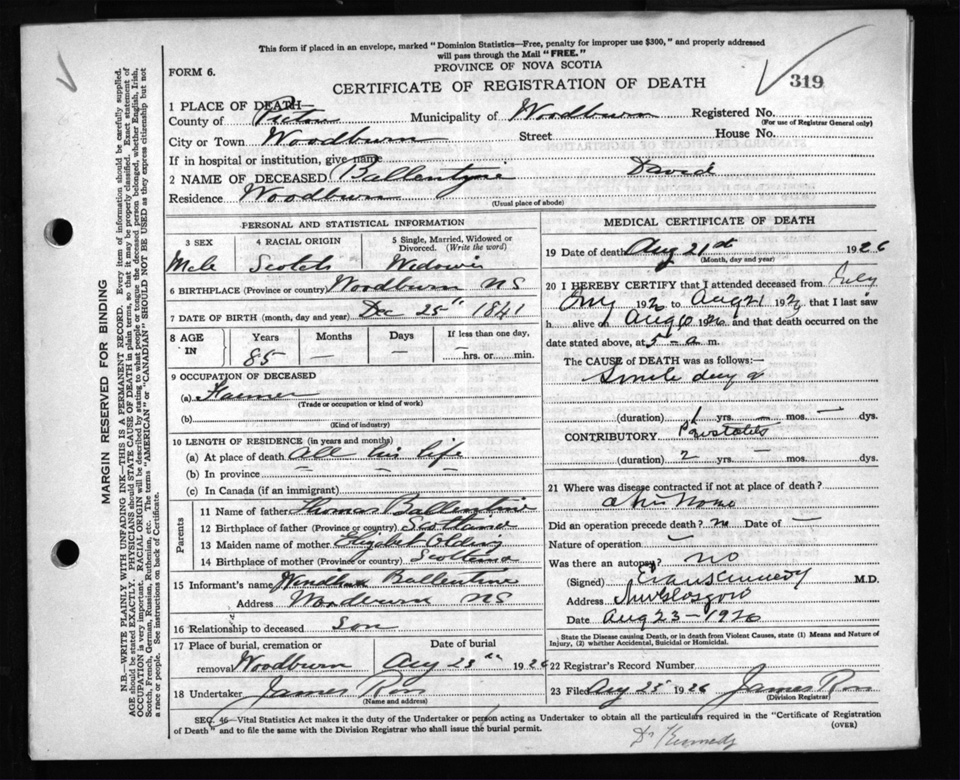 This form if placed in an envelope, marked "Dominion Statistics—Free, penalty for improper use $300," and properly addressed
will pass through the Mail "FREE."
PROVINCE OF NOVA SCOTIA
FORM 6.
CERTIFICATE OF REGISTRATION OF DEATH
319
1 PLACE OF DEATH—
County of Pictou Municipality of Woodburn Registered No.
(For use of Registrar General only)
City or Town Woodburn Street House No.
If in hospital or institution, give name
2 NAME OF DECEASED Ballentyne David
Residence Woodburn
(Usual place of abode)
PERSONAL AND STATISTICAL INFORMATION
3 SEX 4 RACIAL ORIGIN 5 Single, Married, Widowed or Divorced. (Write the word)
Male Scotch
6 BIRTHPLACE (Province or country) Woodburn NS
7 DATE OF BIRTH (month, day and year) Dec 25th 1841
8 AGE IN Years Months Days If less than one day,
85 — — — hrs. or min.
9 OCCUPATION OF DECEASED
(a) Farmer
(Trade or occupation or kind of work)
(b)
(Kind of industry)
10 LENGTH OF RESIDENCE (in years and months)
(a) At place of death all his life
(b) In province — — —
(c) In Canada (if an immigrant)
Parents
11 Name of father Thomas Ballentine
12 Birthplace of father (Province or country) Scotland
13 Maiden name of mother
14 Birthplace of mother (Province or country) Scotland
15 Informant's name Ballentine
Address Woodburn NS
16 Relationship to deceased Son
17 Place of burial, cremation or removal Woodburn Date of burial Aug 23rd 1926
18 Undertaker James Ross
(Name and address)
MEDICAL CERTIFICATE OF DEATH
19 Date of death Aug 21st 1926
(Month, day and year)
20 I HEREBY CERTIFY that I attended deceased from July
1926 to Aug 21 1926 that I last saw
h alive on Aug 1926 and that death occurred on the
date stated above, at 5 - a m.
The CAUSE of DEATH was as follows:—
Senile
(duration) 1 yrs. — mos. — dys.
CONTRIBUTORY
(duration) 2 yrs. mos. dys.
21 Where was disease contracted if not at place of death?
at his Home
Did an operation precede death? no Date of —
Nature of operation —
Was there an autopsy? no
(Signed) Evan Kennedy M.D.
Address New Glasgow
Date Aug 23 - 1926
State the Disease causing Death, or in death from Violent Causes, state (1) Means and Nature of Injury, (2) whether Accidental, Suicidal or Homicidal.
22 Registrar's Record Number
23 Filed Aug 25 1926 James Ross
(Division Registrar)
SEC. 46—Vital Statistics Act makes it the duty of the Undertaker or person acting as Undertaker to obtain all the particulars required in the "Certificate of Registration
of Death" and to file the same with the Division Registrar who shall issue the burial permit.
(OVER)
Dr Kennedy
MARGIN RESERVED FOR BINDING
N.B.—WRITE PLAINLY WITH UNFADING INK—THIS IS A PERMANENT RECORD. Every item of information should be carefully supplied.
AGE should be stated EXACTLY. PHYSICIANS should STATE CAUSE OF DEATH in plain terms, so that it may be properly classified. Exact statement of
OCCUPATION is very important. RACIAL ORIGIN will be described by stating to what people or tongue the deceased person belonged, whether English, Irish,
Scotch, French, German, Russian, Ruthenian, etc. The terms "AMERICAN" or "CANADIAN" SHOULD NOT BE USED as they express citizenship but not
a race or people. See instructions on back of Certificate.